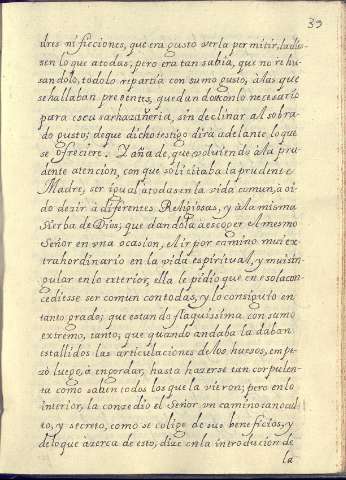 39
dres ni ficciones, que era gusto verla permitir, la diessen lo que a todas; pero era tan sabia, que no rehu
sandolo, todo lo repartia con sumo gusto, à las que
se hallaban presentes, quedandose con lo necesario
para
sin declinar al sobra
do gusto; de que dicho testigo dirà adelante lo que
se ofreciere. Y añade, que volviendo à la pru
dente atencion, con que solicitaba la prudente
Madre, ser igual a todas en la vida comun, a oi
do dezir à diferentes Religiosas, y à la misma
Sierba de Dios; que dandola a escoger el mesmo
Señor en vna ocasion, el ir por camino mui ex
trahordinario en la vida espiritual, y mui sin
gular en lo exterior, ella le pidio que en eso la con
cediesse ser comun con todas, y lo consiguio en
tanto grado; que estando flaquissima con sumo
extremo, tanto, que quando andaba la daban
estallidos las articulaciones de los huesos, empe
zò luego, à engordar, hasta hazerse tan corpulen
ta como saben todos los que la vieron; pero en lo
interior, la conzedio el Señor vn camino tan ocul
to, y secreto, como se colige de sus beneficios, y
de lo que àzerca de esto, dize en la introducion de
la